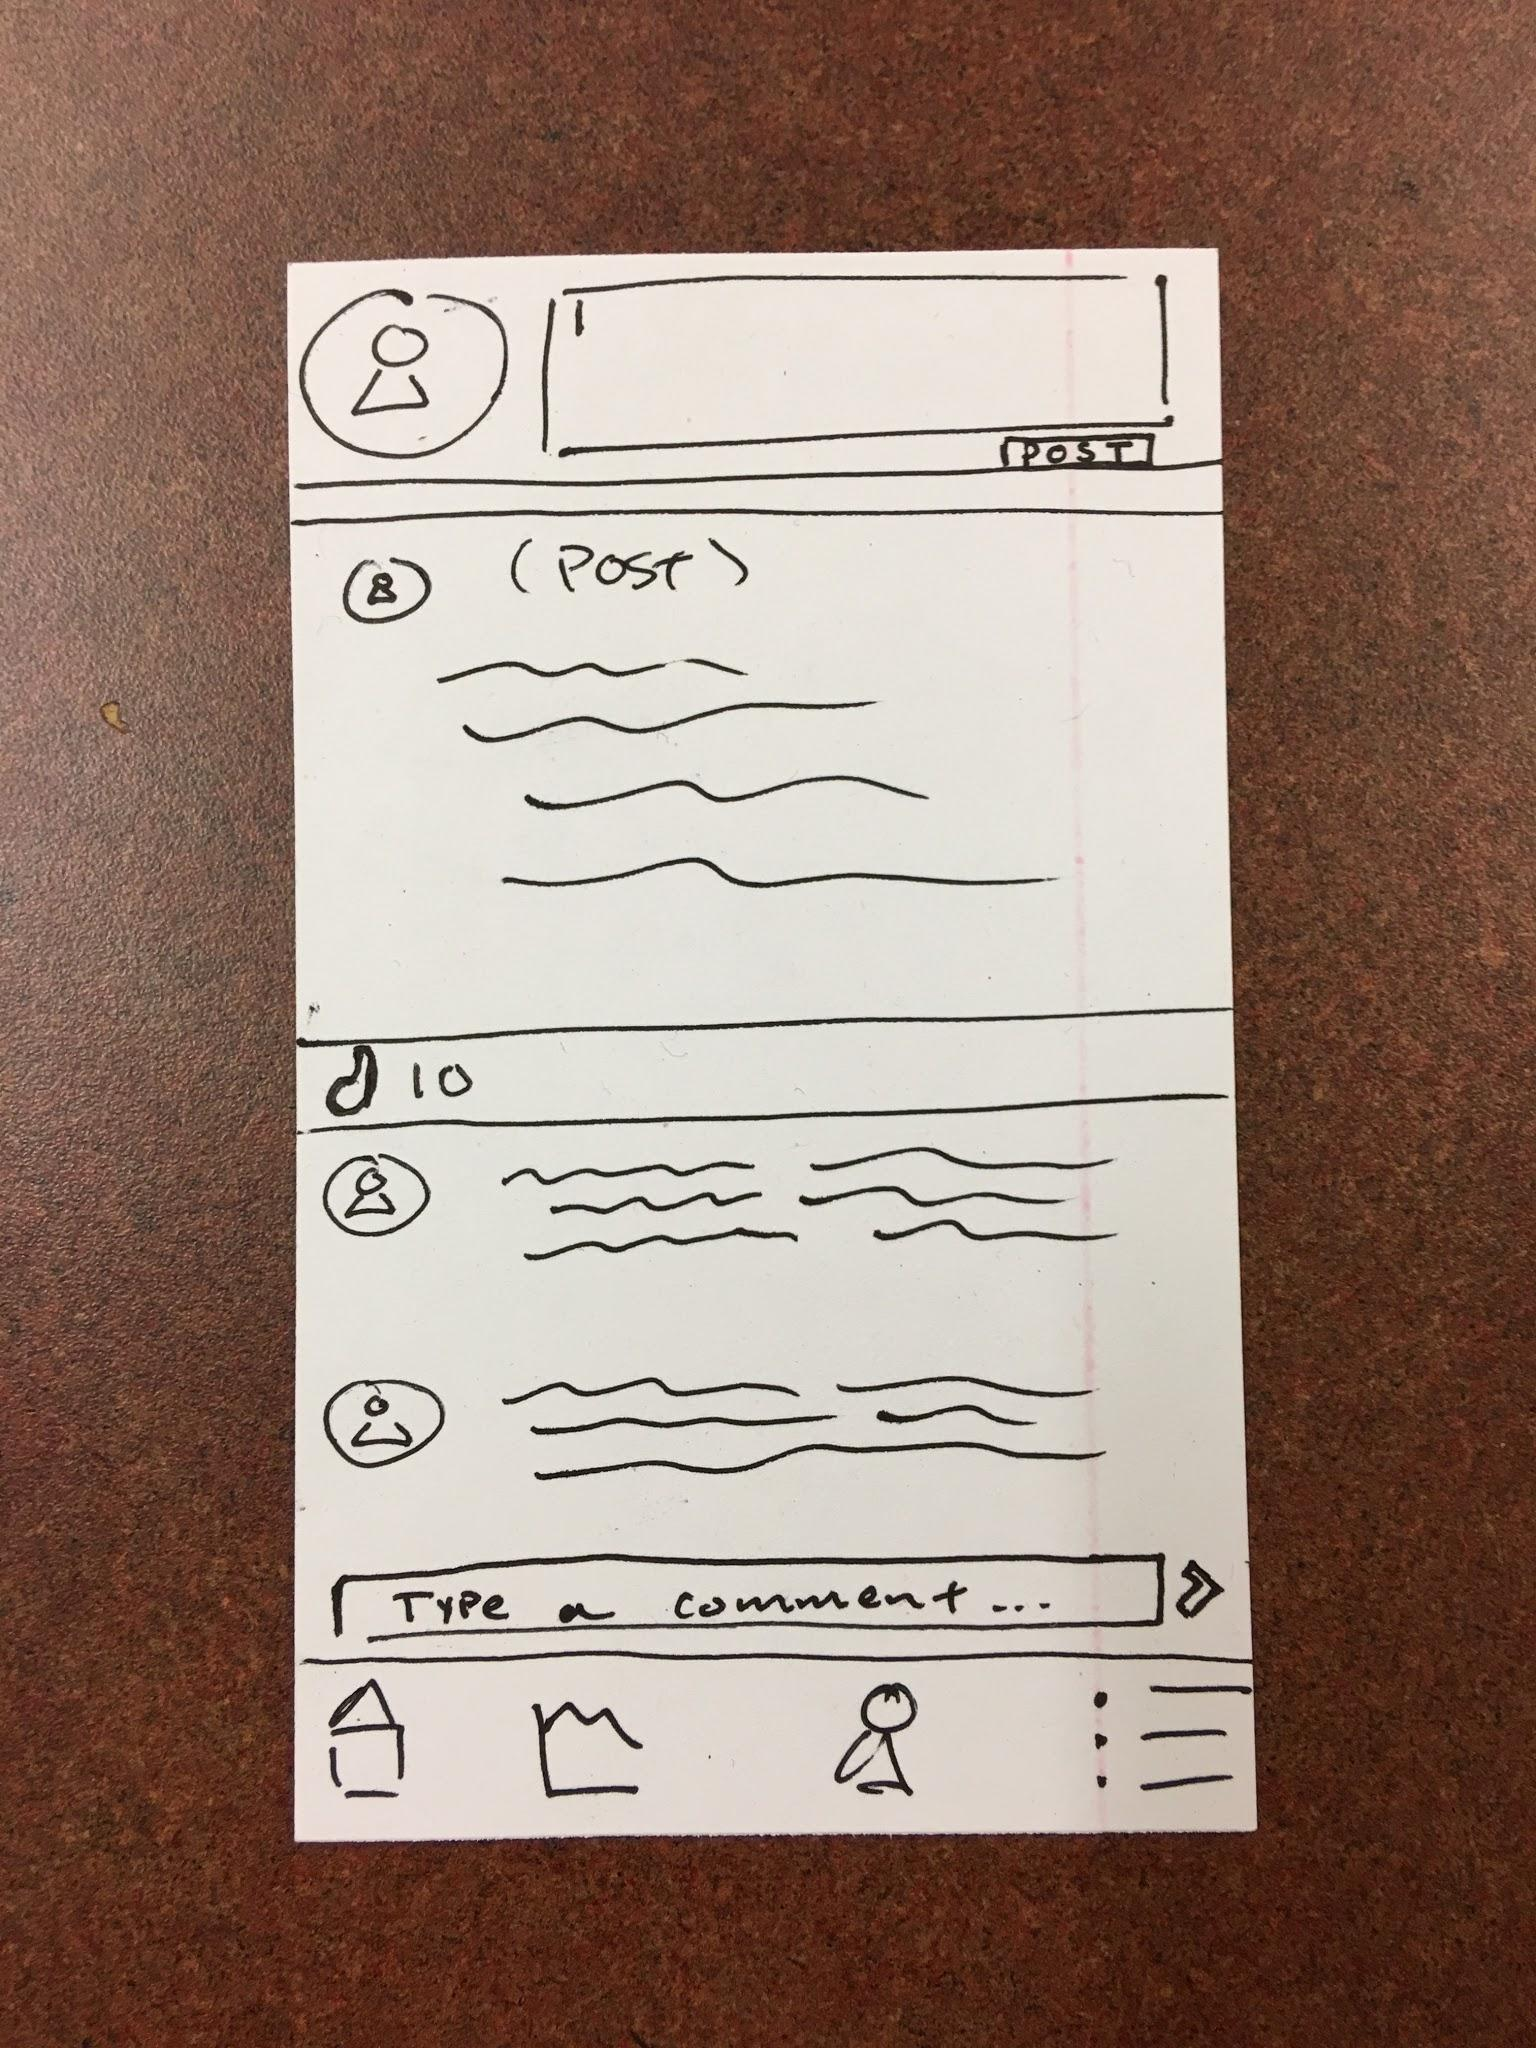 POST
(Post)
10
Type a comment...